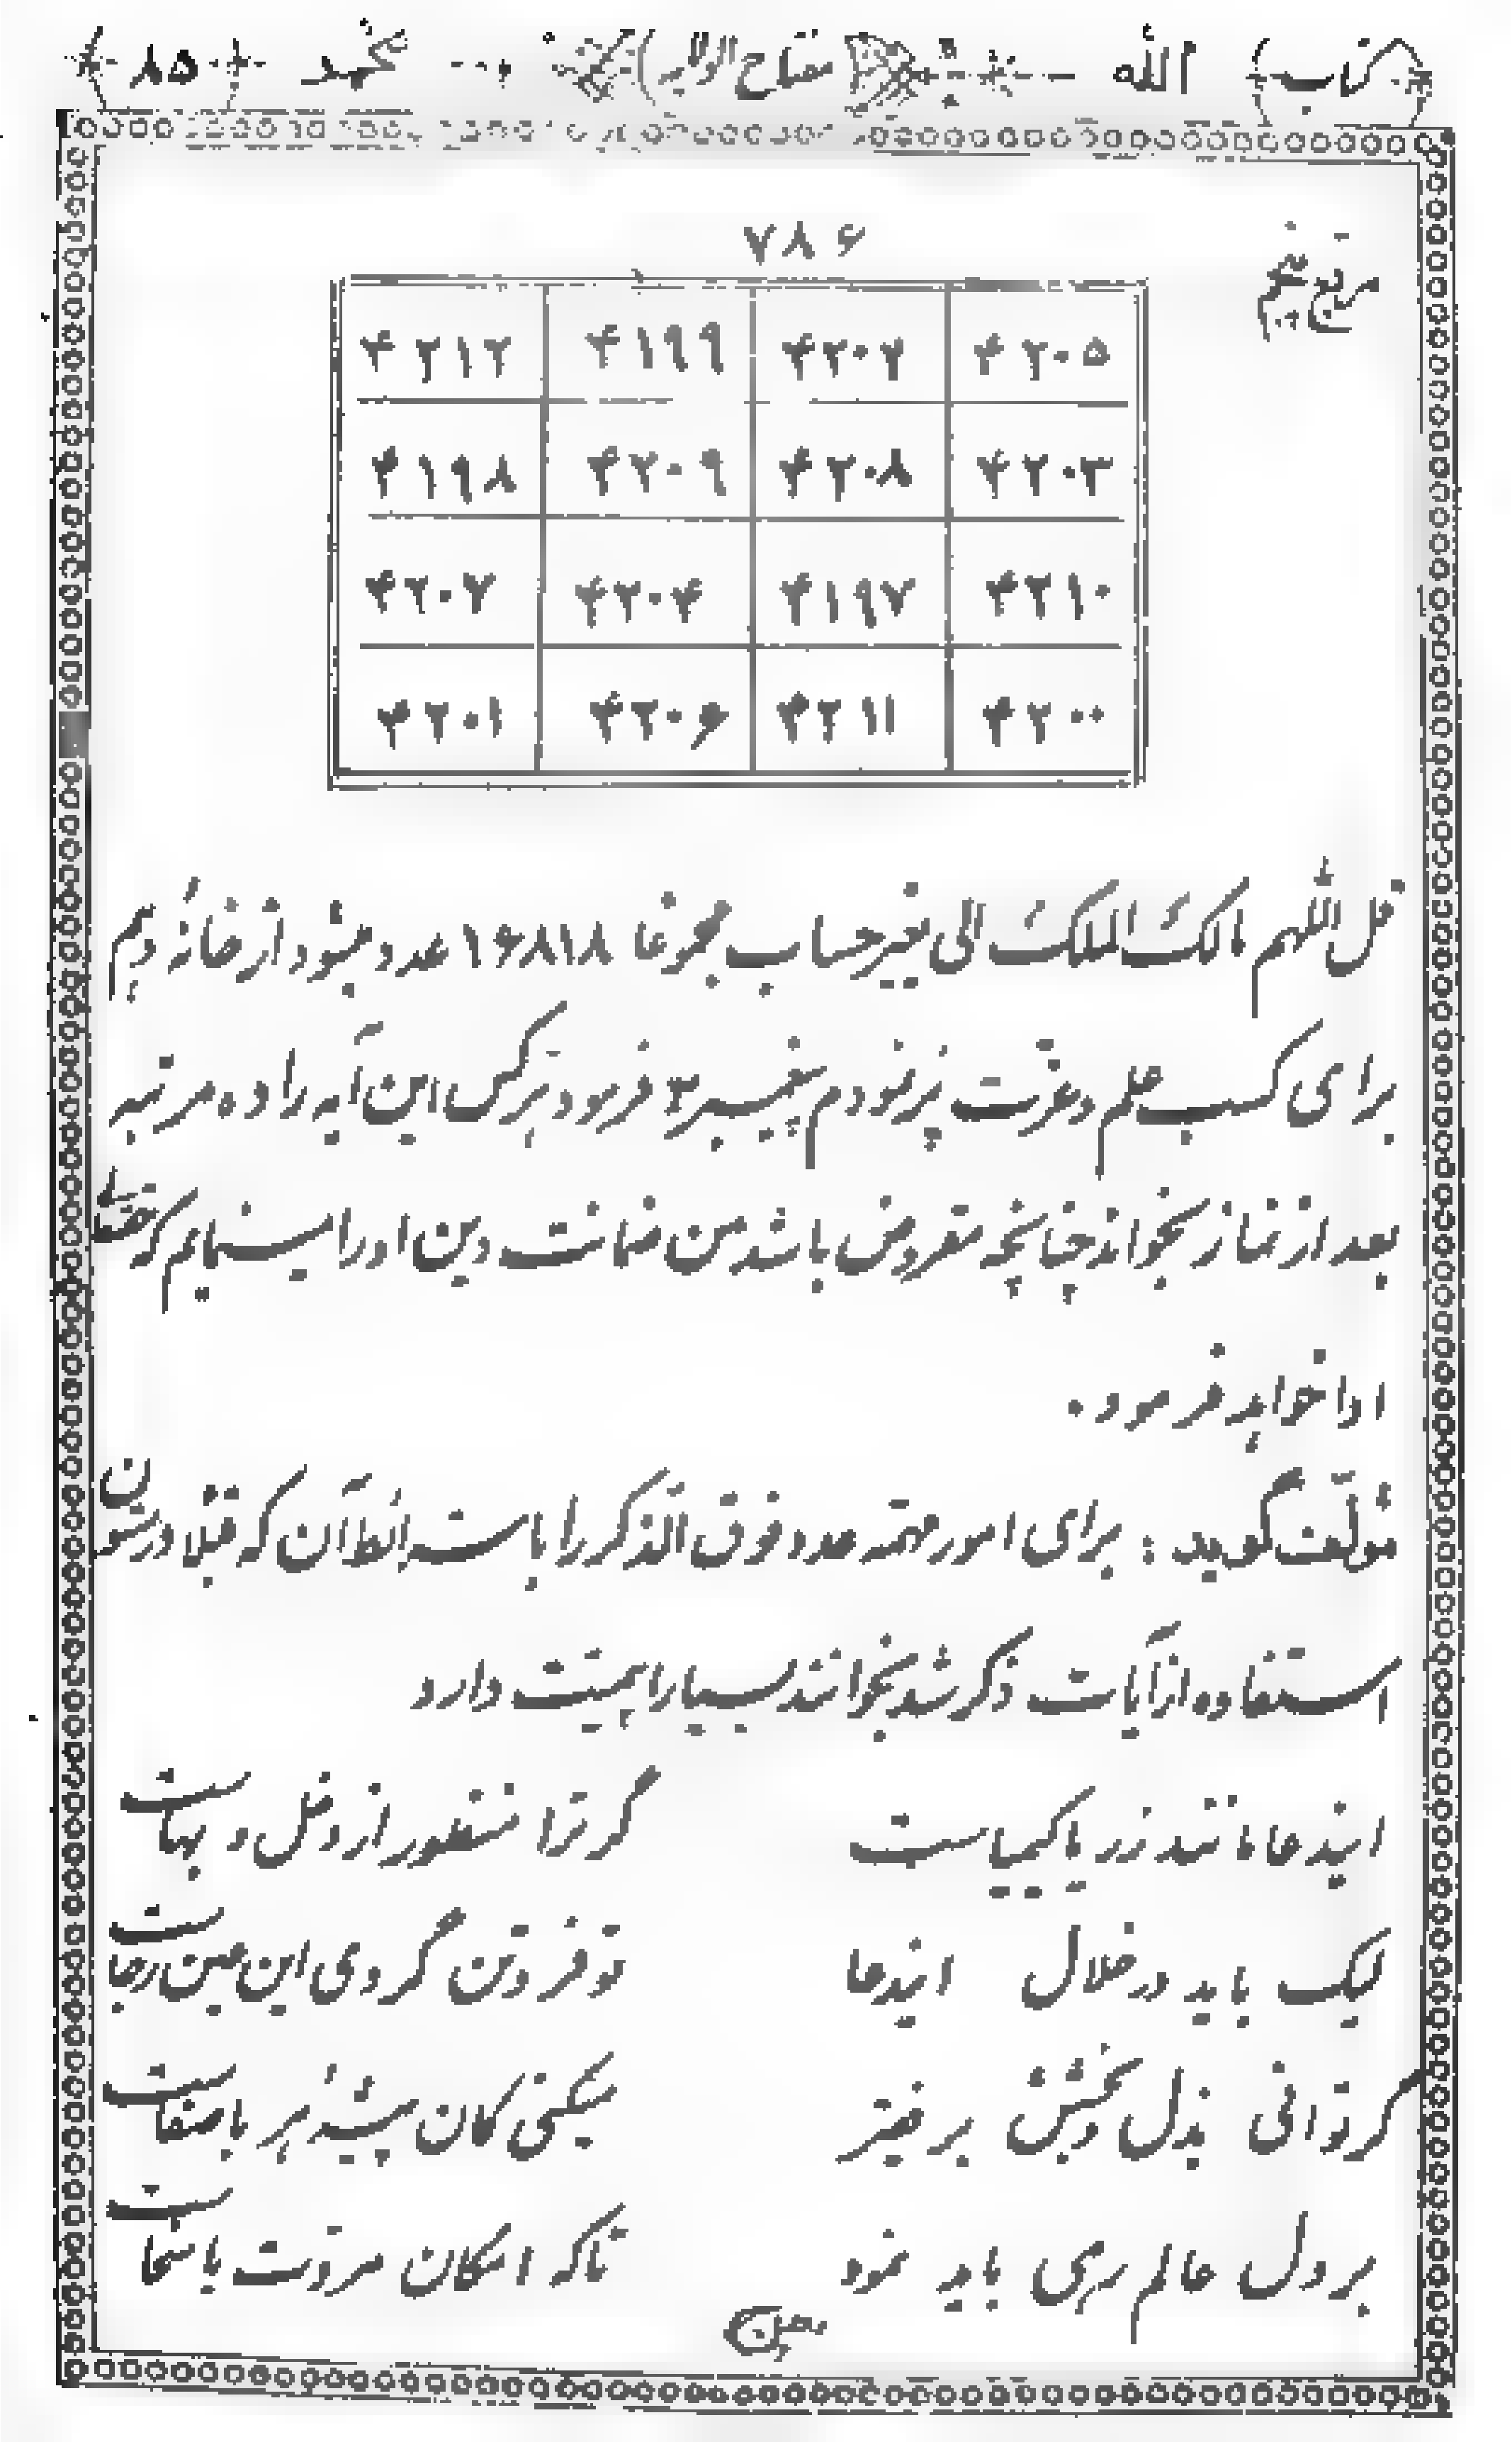 (کتاب) الله (مفتاح الولایه) محمد (۸۵)
۷۸۶
مربع پنجم
۴۲۱۲ ۴۱۹۹ ۴۲۰۲ ۴۲۰۵
۴۱۹۸ ۴۲۰۹ ۴۲۰۸ ۴۲۰۳
۴۲۰۷ ۴۲۰۴ ۴۱۹۷ ۴۲۱۰
۴۲۰۱ ۴۲۰۶ ۴۲۱۱ ۴۲۰۰
قل اللهم مالک الملک الی بغیر حساب مجموعا ۱۶۸۱۸ عدد میشود از خانه دهم
برای کسب علم و عزت پر نمودم پیغمبر ص فرمود هر کس این آیه را ده مرتبه
بعد از نماز بخواند چنانچه مقروض باشد من ضمانت دین او را مینمایم که حقتعالی
ادا خواهد فرمود .
مؤلف گوید : برای امور مهمه عدد فوق الذکر را با شرائط آن که قبلا در شئون
استفاده از آیات ذکر شد بخوانند بسیار اهمیت دارد
ایندعا مانند زر یا کیمیاست گر ترا منظور از دخل و بهاست
لیک باید در خلال ایندعا تو فروتن گردی این عین رجاست
گر توانی بذل و بخشش بر فقیر میکنی کان پیشهٔ هر با صفاست
بر دل عالم رهی باید نمود تا که امکان مروت با سخاست